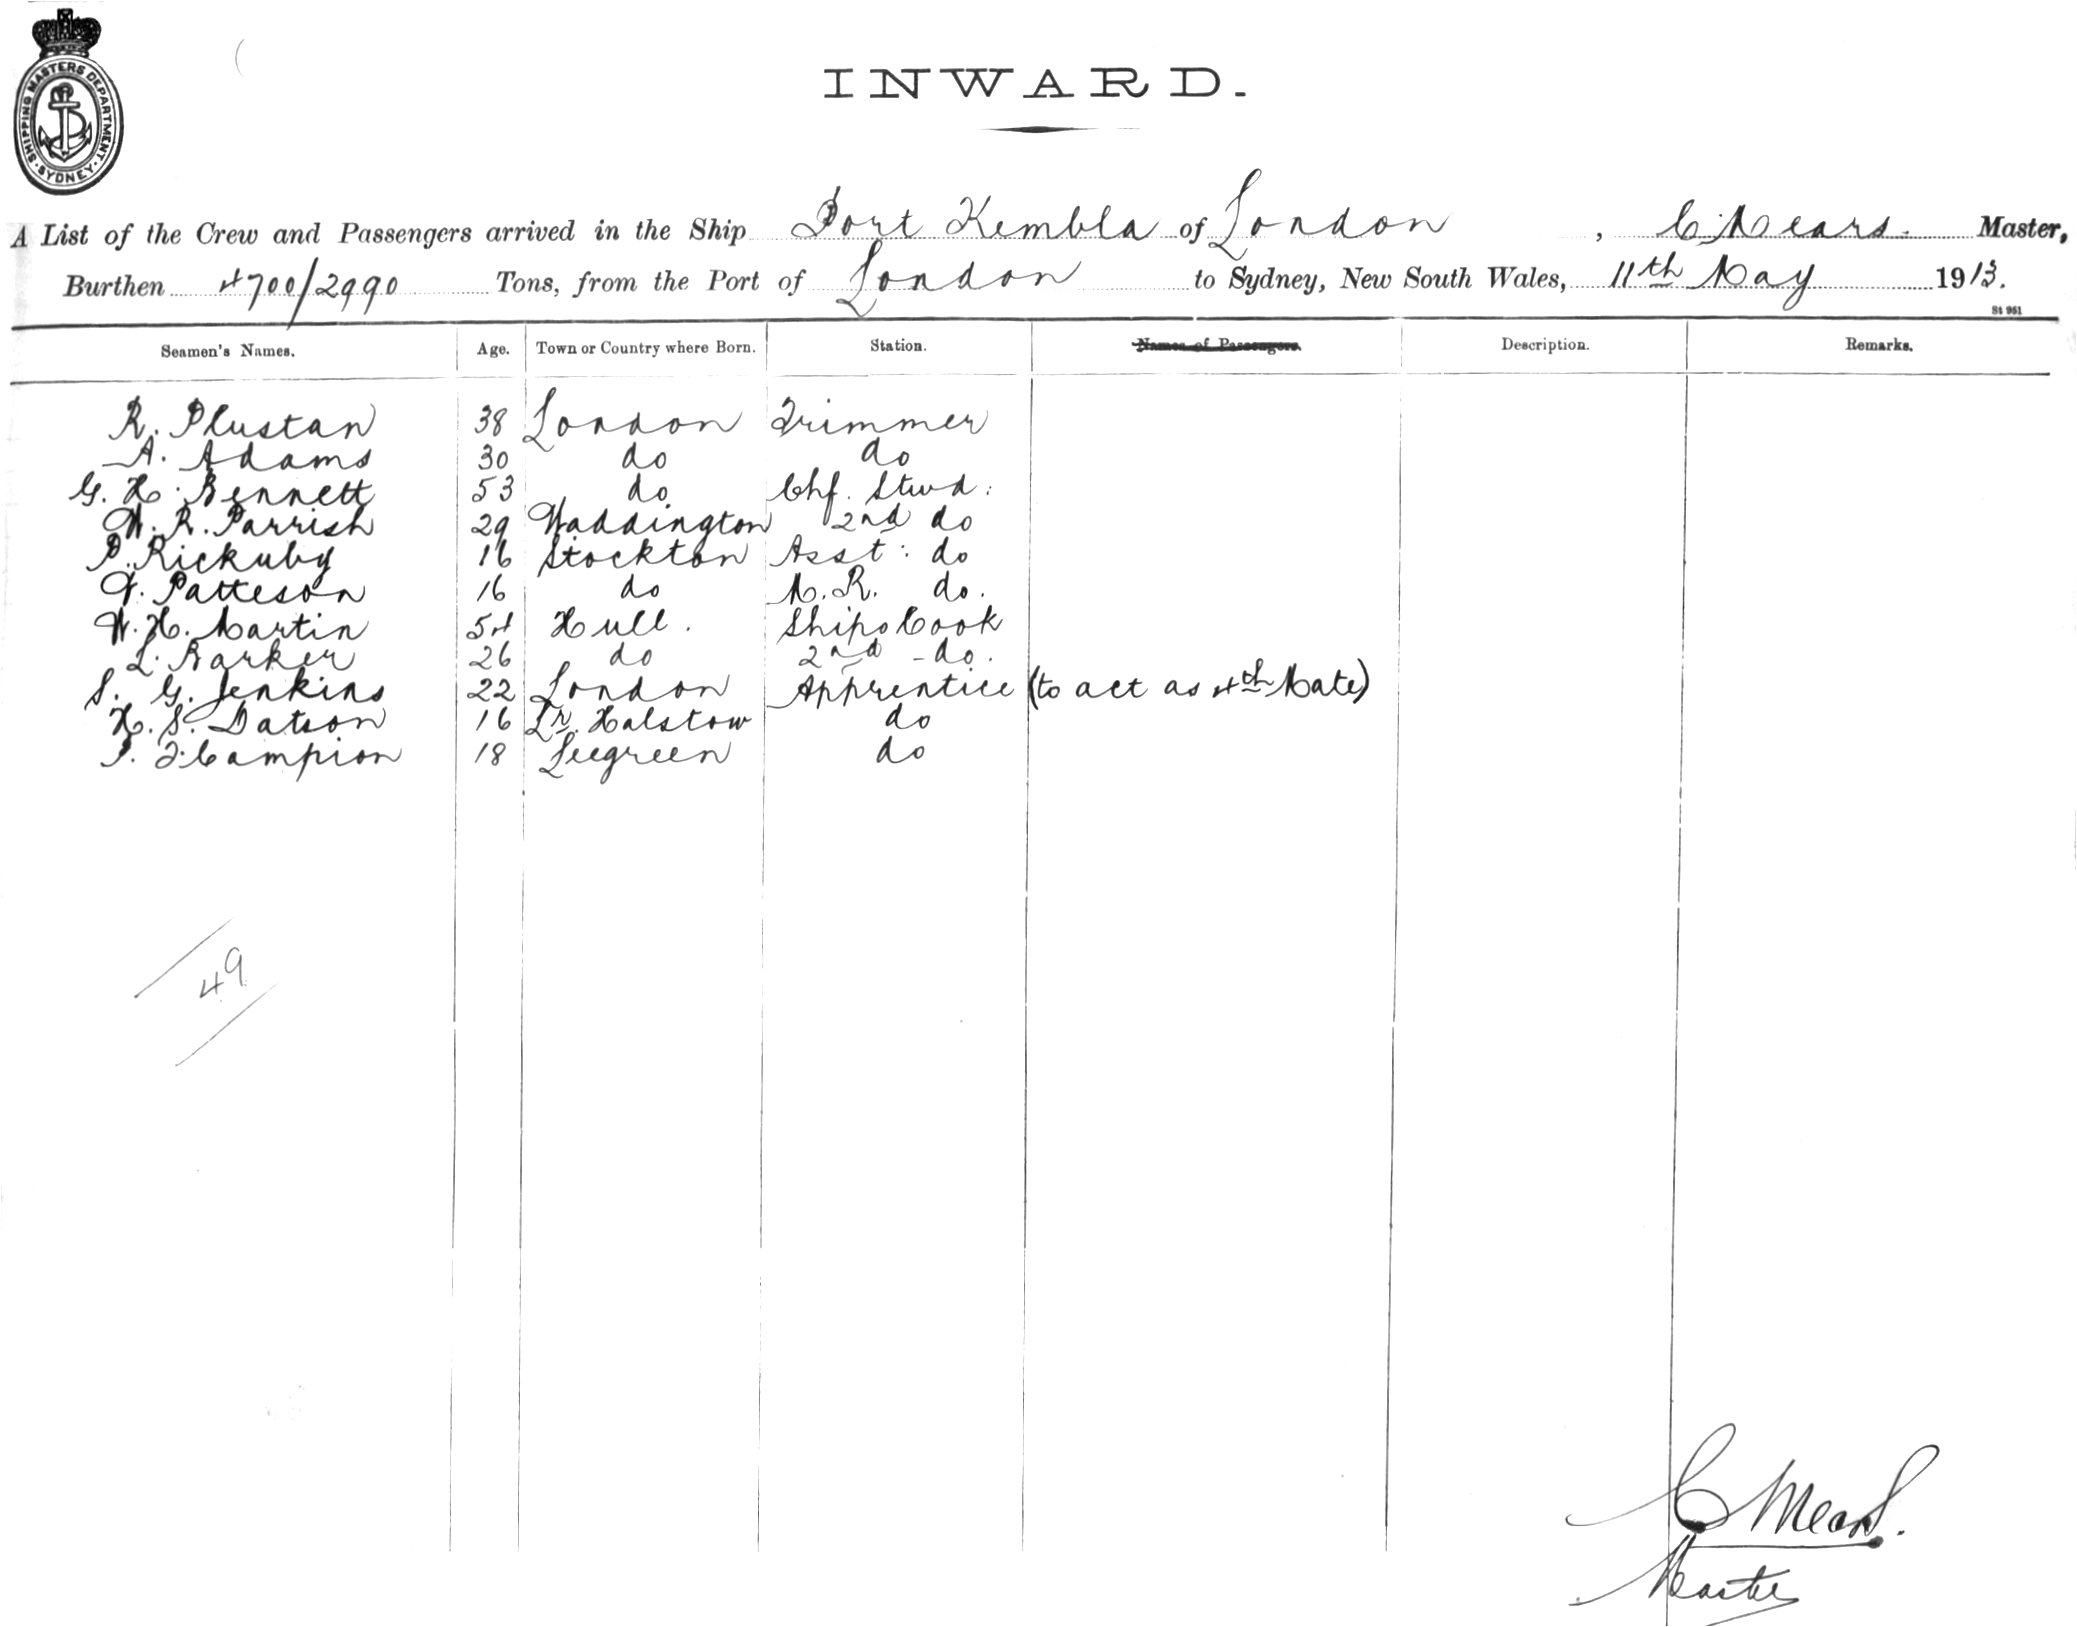 SHIPPING MASTERS DEPARTMENT. SYDNEY
INWARD.
A List of the Crew and Passengers arrived in the Ship Port Kembla of London, C. Mears. Master,
Burthen 4700/2990 Tons, from the Port of London to Sydney, New South Wales, 11th May 1913.
St 951
Seamen's Names. Age. Town or Country where Born. Station. Names of Passengers. Description. Remarks.
R. Plustan 38 London Trimmer
A. Adams 30 do do
G. H. Bennett 53 do Chf. Stwd:
W. R. Parrish 29 Waddington 2nd do
P. Rickuby 16 Stockton Asst: do
Patteson 16 do M.R. do.
W. H. Martin 54 Hull. Ships Cook
L. Barker 26 do 2nd - do.
S. G. Jenkins 22 London Apprentice (to act as 4th Mate)
H. S. Datson 16 Lr. Halstow do
Campion 18 Leegreen do
49
C Mears.
Master